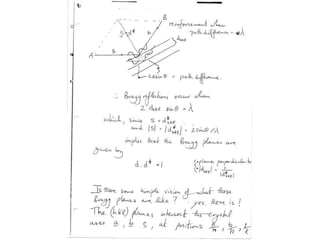 B
reinforcement when
path difference = λ
A
2dsinθ = path difference
∴ Bragg reflections occur when
2 d sinθ = λ
which, since S = d*
and |S| = |d*| = 2sinθ/λ
implies that the Bragg planes are
given by
d . d* = 1
Is there some simple vision of what these
Bragg planes are like? yes, there is!
The (hkl) planes intersect the crystal
axes a, b, c, at positions a/h, b/k, c/l